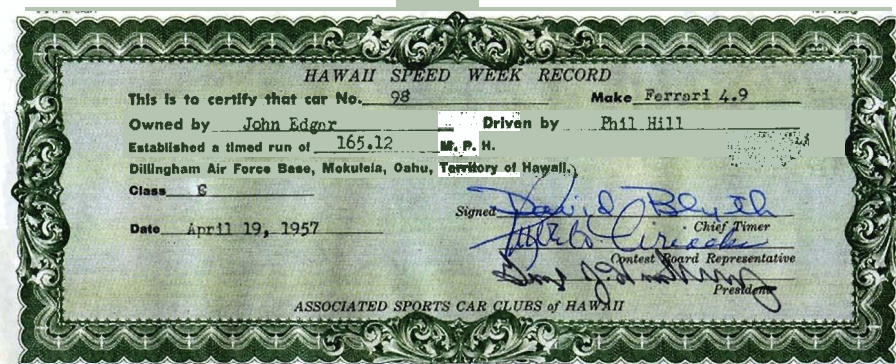 HAWAII SPEED WEEK RECORD
This is to certify that car No. 98 Make Ferrari 4.9
Owned by John Edgar Driven by Phil Hill
Established a timed run of 165.12 M. P. H.
Dillingham Air Force Base, Mokuleia, Oahu, Territory of Hawaii.
Class C
Signed David Blyth
Chief Timer
Date April 19, 1957
Contest Board Representative
President
ASSOCIATED SPORTS CAR CLUBS of HAWAII